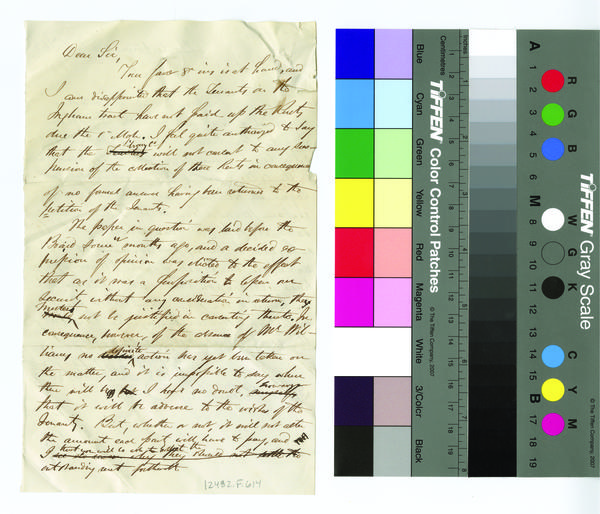 Dear Sir,
Your favor of is at hand, and
I am disappointed that the Tenants on the
Ingham tract have not paid up the Rents
due the 1st Mch. I feel quite authorized to say
that the will not consent to any sus-
pension of the collection of these Rents in consequence
of no formal answer having been returned to the
petition of the Tenants.
The paper in question was laid before the
Board some months ago, and a decided ex-
pression of opinion was elicited to the effect
that as it was a proposition to lessen our
security without any consideration in return, the
would not be justified in assenting thereto. In
consequence, however, of the absence of Mr Wil-
liams no definite action has yet been taken on
the matter, and it is impossible to say when
there will be I have no doubt, however
that it will be adverse to the wishes of the
Tenants. But, whether or not, it will not alter
the amount each part will have to pay, and
I that you will
outstanding rent forthwith
12482.F.614
TIFFEN Color Control Patches
© The Tiffen Company, 2007
Centimetres
Inches
Blue
Cyan
Green
Yellow
Red
Magenta
White
3/Color
Black
TIFFEN Gray Scale
© The Tiffen Company, 2007
A
1
2
3
4
5
6
M
8
9
10
11
12
13
14
15
B
17
18
19
R
G
B
W
G
K
C
Y
M